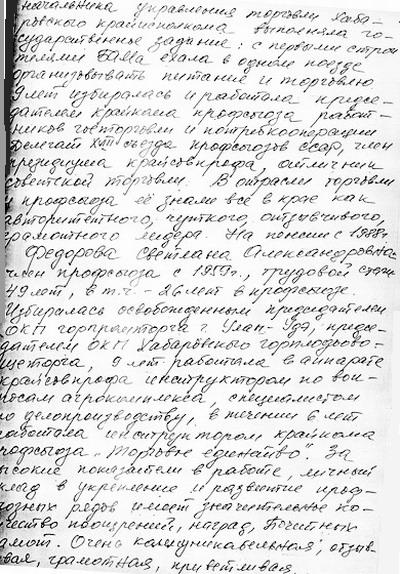 начальника управления торговли Хаба-
ровского крайисполкома выполняла го-
сударственное задание: с первыми строи
телями БАМа ехала в одном поезде
организовывать питание и торговлю
9 лет избиралась и работала предсе-
дателем крайкома профсоюза работ-
ников госторговли и потребкооперации
делегат XVII съезда профсоюзов СССР, член
президиума крайсовпрофа, отличник
советской торговли. В отрасли торговли
и профсоюза её знали всё в крае как
авторитетного, чуткого, отзывчивого,
грамотного лидера. На пенсии с 1988г.
Федорова Светлана Александровна
член профсоюза с 1959г., трудовой стаж
49 лет, в т.ч. - 26 лет в профсоюзе.
Избиралась освобожденным председателем
ОКП горпромторга г. Улан-Удэ, предсе-
дателем ОКП Хабаровского горплодоово-
щеторга, 9 лет работала в аппарате
крайсовпрофа инструктором по воп-
росам агрокомплекса, специалистом
по делопроизводству, в течении 6 лет
работала инструктором крайкома
профсоюза „Торговое единство". За
высокие показатели в работе, личный
вклад в укрепление и развитие проф-
союзных рядов имеет значительное ко-
личество поощрений, наград, Почетных
грамот. Очень коммуникабельная, отзыв-
чивая, грамотная, приветливая